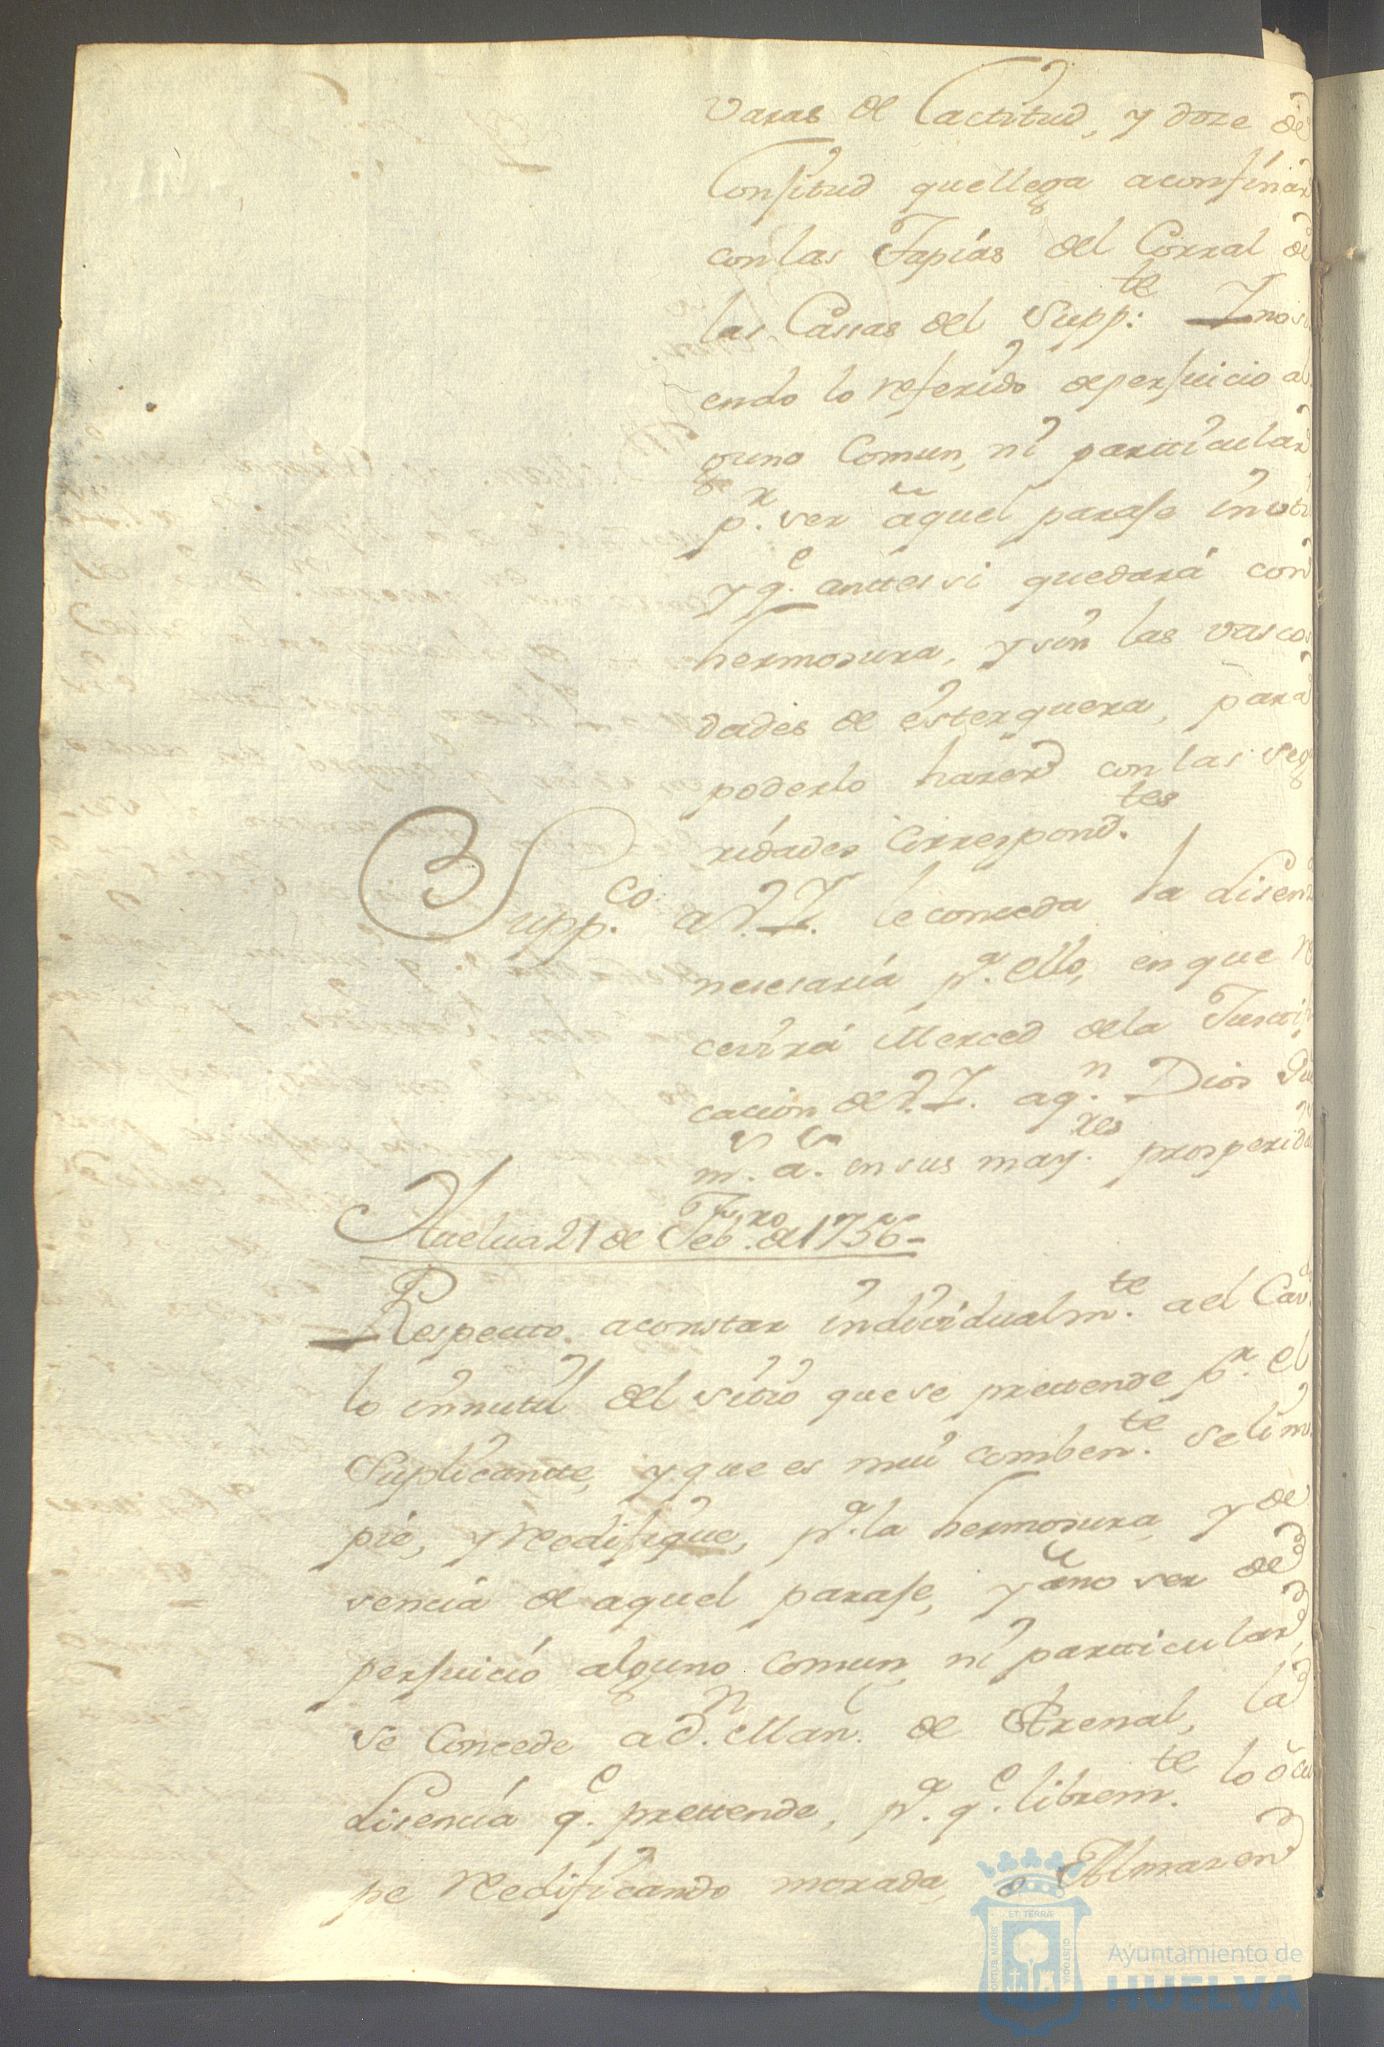 varas de Lactitud, y doze de
Lonjitud que llega a confinar
con las Tapias del Corral de
las Cassas del Supp.te Y no si
endo lo referido de perjuicio al
guno Comun, ni particular
p.r ser aquel paraje inuti
y q.e antes si quedará con
hermosura, y sin las vasco
dades de esterquera, para
poderlo hazer con las seg
ridades Correspond.tes
Supp.co a V.S. le conceda la lisen
nesesaria p.a ello, en que re
cevirá Merced de la Justifi
cacion de V.S. a q.n Dios Gu
m.s a.s en sus may.res prosperida
Huelva 21 de Feb.ro de 1756
Respecto a constar individualm.te a el Cav.
lo innutil del sitio que se prettende p.r el
Suplicante, y que es mui comben.te se lim
pie, y reedifique, p.a la hermosura y de
sencia de aquel paraje, y a no ser de
perjuicio alguno comun, ni particular,
se Concede a D.n Man.l de Arenal, la
lisencia q.e prettende, p.a q.e librem.te lo ocu
pe reedificando morada, o Almazen
PORTUS MARIS ET TERRAE CUSTODIA
Ayuntamiento de
HUELVA